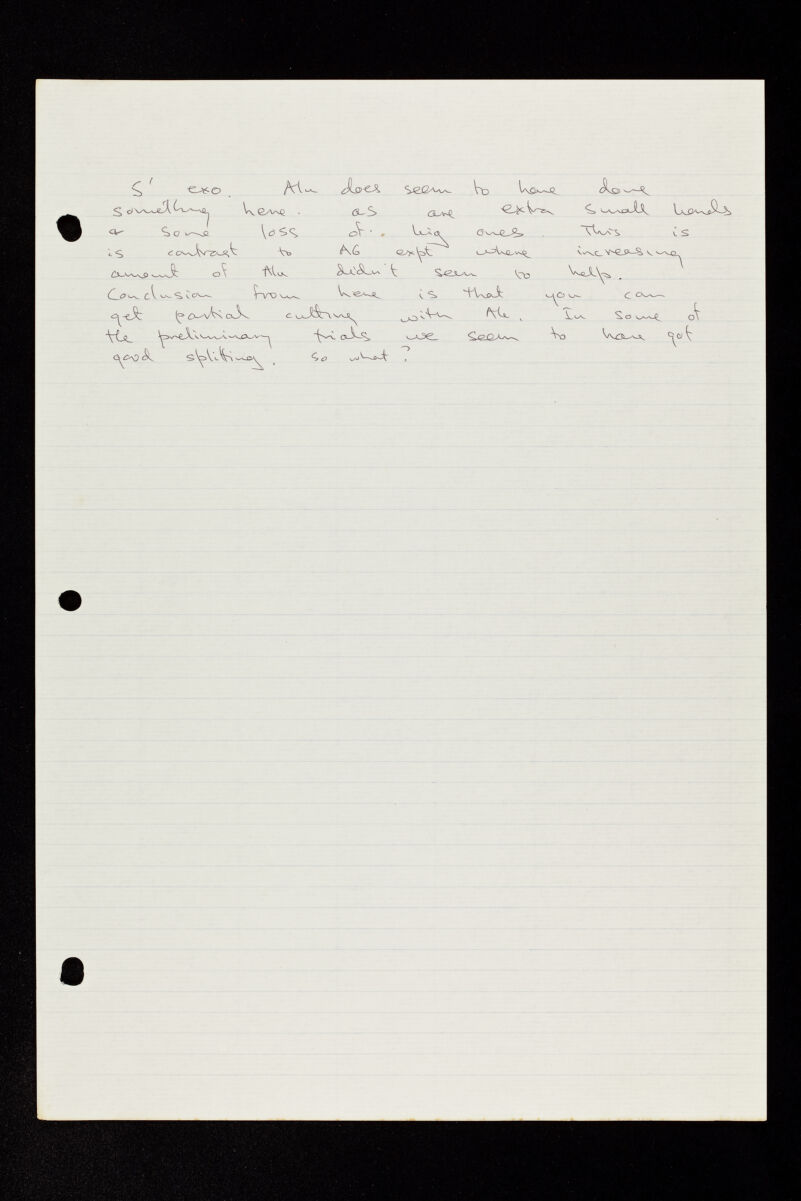 5' exo. Alu does seem to have done
something here. as are extra small bands
& some loss of big ones. This is
is contrast to A6 expt where increasing
amount of Alu didn't seem to help.
Conclusion from here is that you can
get partial cutting with Alu. In some of
the preliminary trials we seem to have got
good splitting. So what?